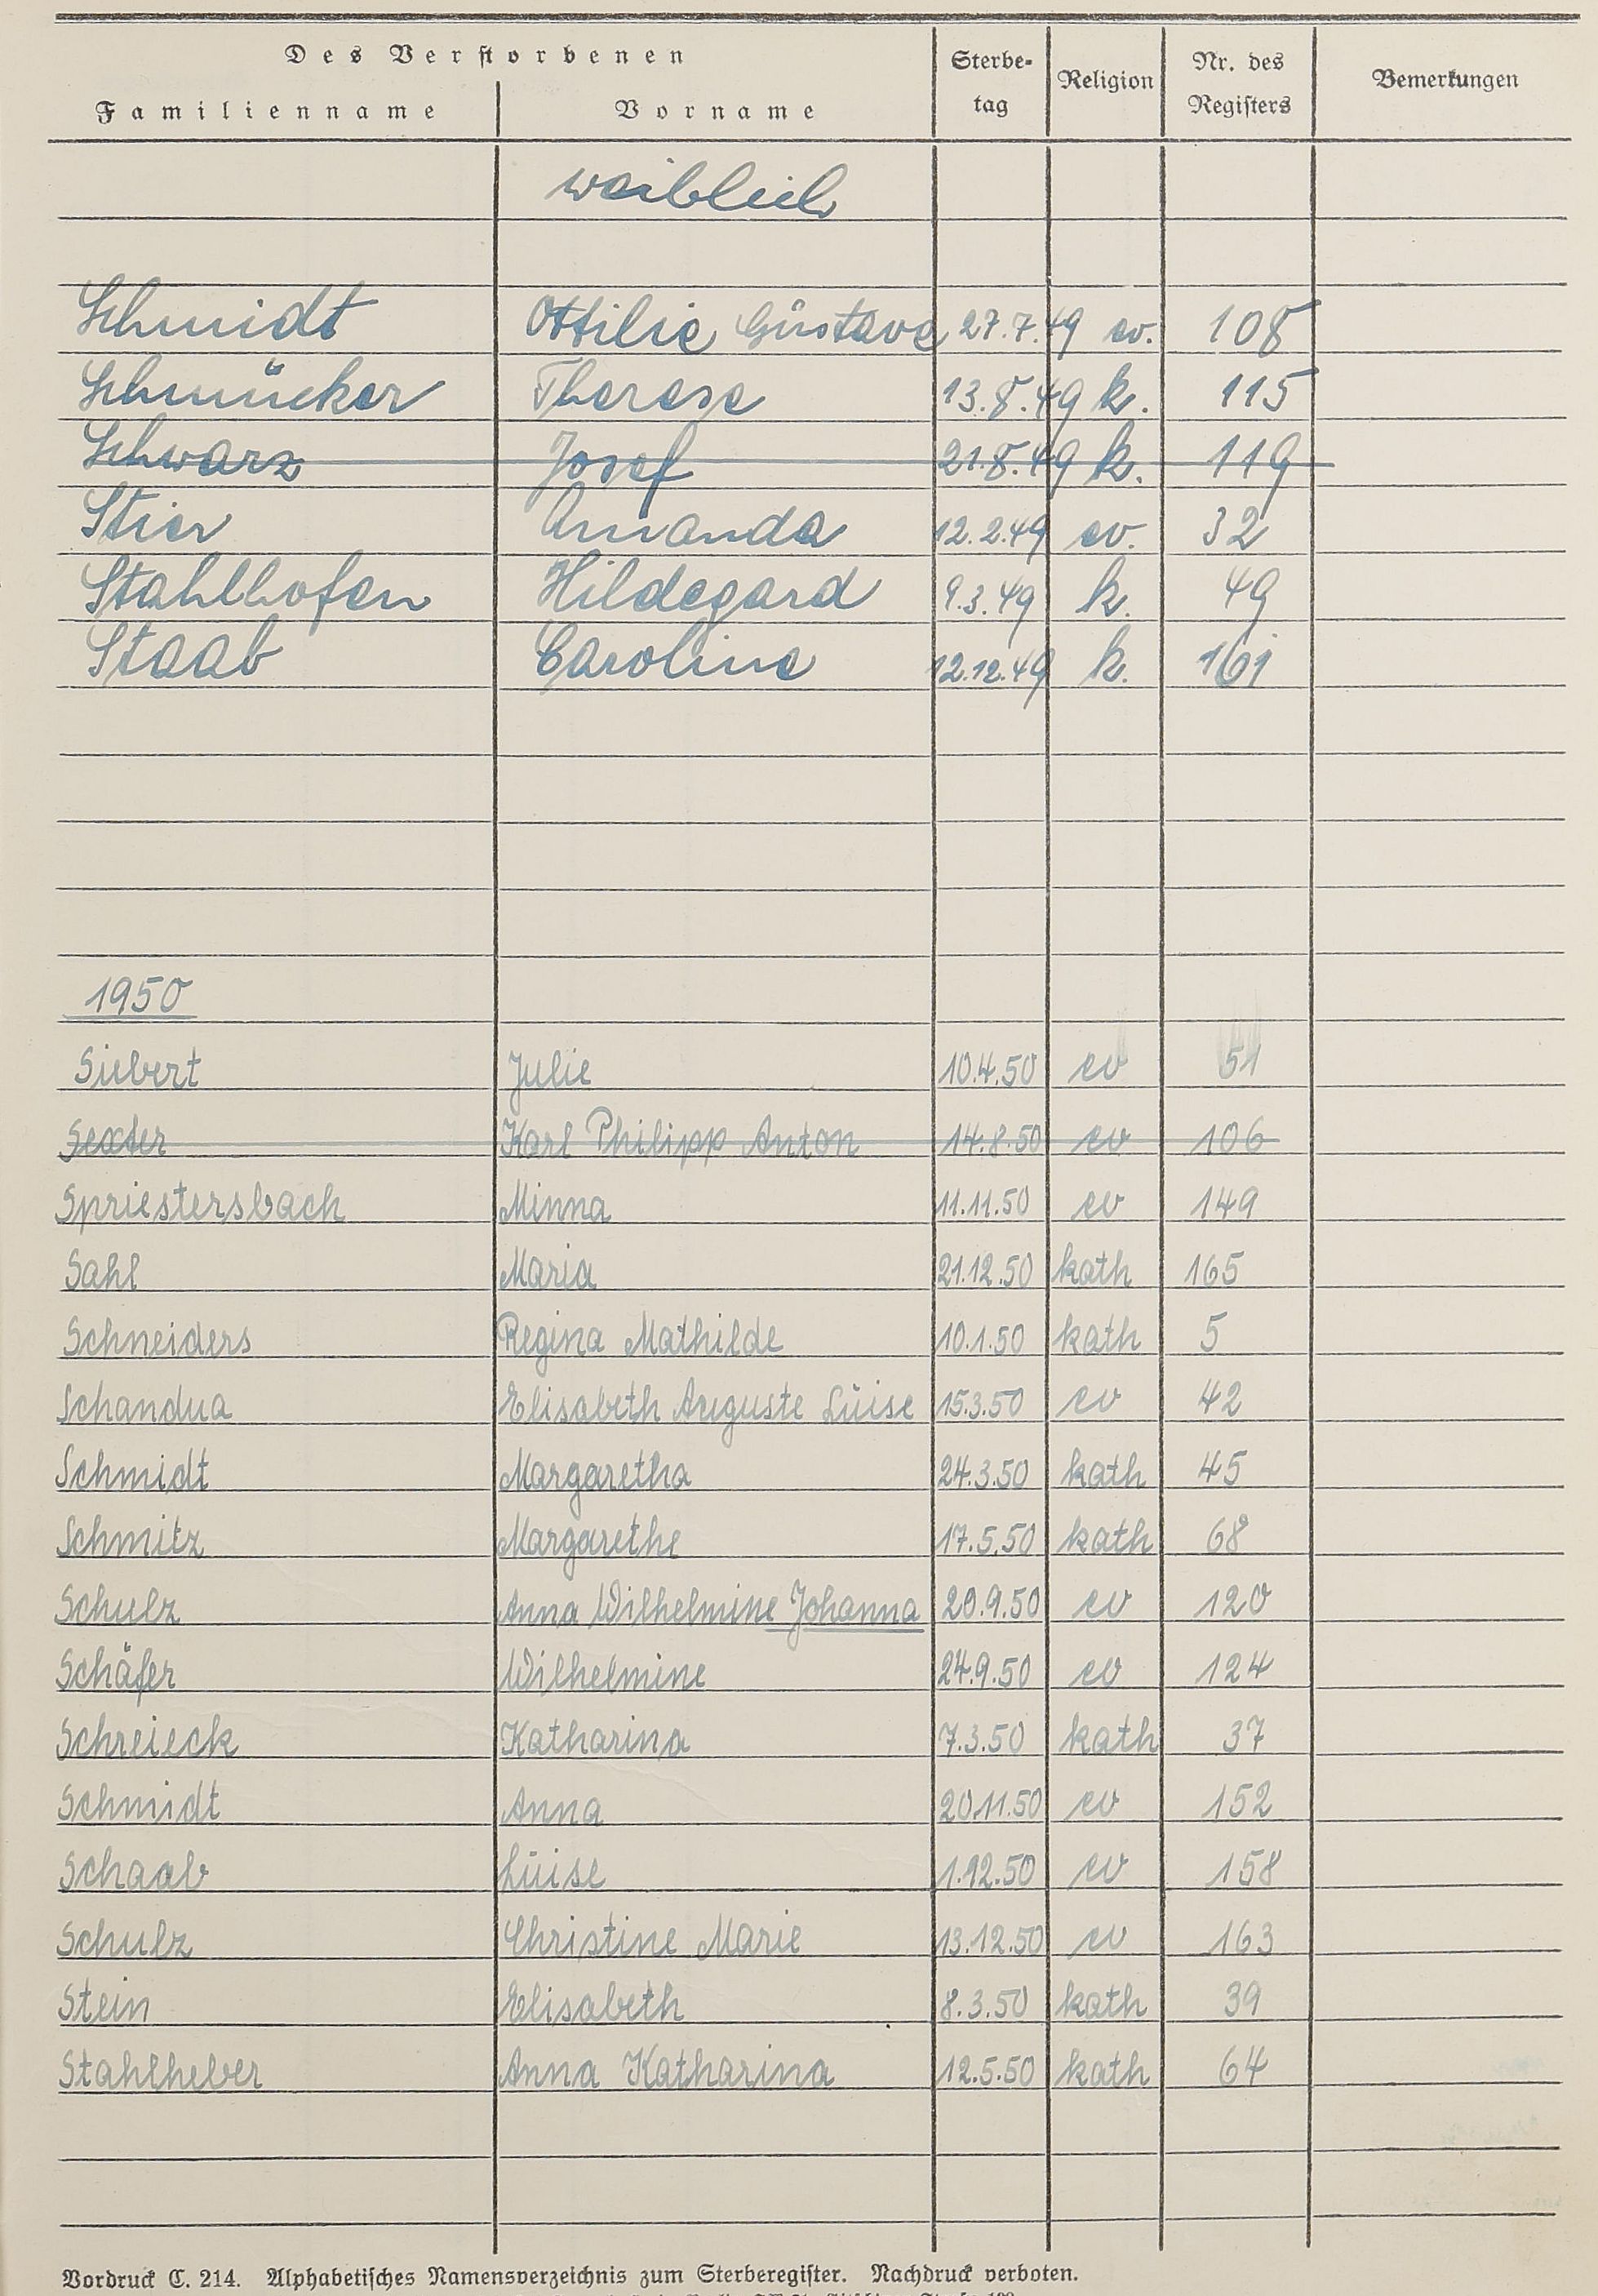 Des Verstorbenen
Familienname Vorname Sterbe-tag Religion Nr. des Registers Bemerkungen
weiblich
Schmidt Ottilie Gustave 27.7.49 ev. 108
Schmücker Therese 13.8.49 k. 115
Schwarz Josef 21.8.49 k. 119
Stier Amanda 12.2.49 ev. 32
Stahlhofen Hildegard 9.3.49 k. 49
Staab Caroline 12.12.49 k. 161
1950
Siebert Julie 10.4.50 ev 51
Sexter Karl Philipp Anton 14.8.50 ev 106
Spriestersbach Minna 11.11.50 ev 149
Sahl Maria 21.12.50 kath 165
Schneiders Regina Mathilde 10.1.50 kath 5
Schandua Elisabeth Auguste Luise 15.3.50 ev 42
Schmidt Margaretha 24.3.50 kath 45
Schmitz Margarethe 17.5.50 kath 68
Schulz Anna Wilhelmine Johanna 20.9.50 ev 120
Schäfer Wilhelmine 24.9.50 ev 124
Schreieck Katharina 7.3.50 kath 37
Schmidt Anna 20.11.50 ev 152
Schaab Luise 1.12.50 ev 158
Schulz Christine Marie 13.12.50 ev 163
Stein Elisabeth 8.3.50 kath 39
Stahlheber Anna Katharina 12.5.50 kath 64
Vordruck C. 214. Alphabetisches Namensverzeichnis zum Sterberegister. Nachdruck verboten.